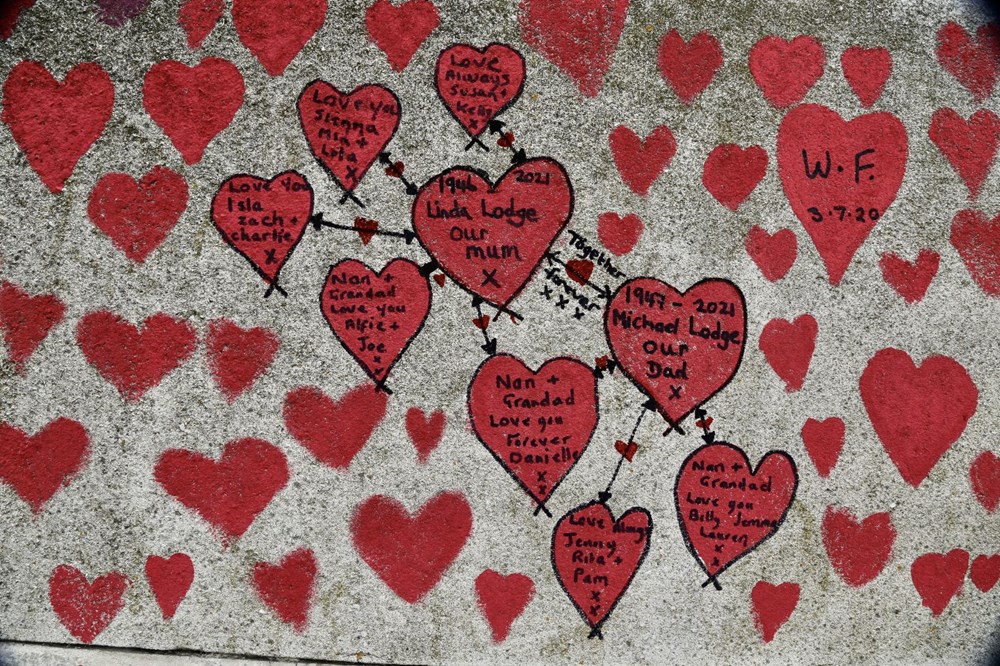 Love
Always
Susan +
Kelly
X
Love you
Sienna
Mia +
Lola
X
Love You
Isla
Zach +
charlie
X
1946 - 2021
Linda Lodge
Our
mum
X
W.F.
3.7.20
Together
Forever
X X X
X
Nan +
Grandad
Love you
Alfie +
Joe
X
X
1947 - 2021
Michael Lodge
Our
Dad
X
Nan +
Grandad
Love you
Forever
Danielle
X
X
Nan +
Grandad
Love you
Billy Jemma
Lauren
X
X
Love Always
Jenny
Rita +
Pam
X
X